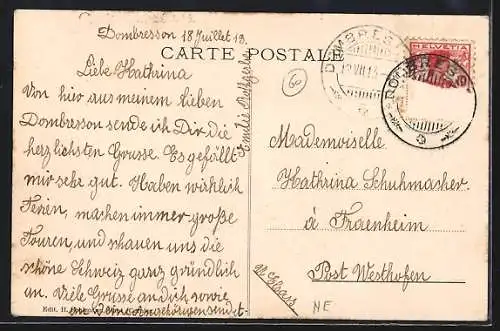 Dombresson 18 Juillet 13.
CARTE POSTALE
HELVETIA
DOMBRESSON
18 VII 13
Liebe Kathrina
Von hier aus meinem lieben
Dombresson sende ich Dir die
herzlichsten Grüsse. Es gefällt
mir sehr gut. Haben wirklich
Ferien, machen immer große
Touren, und schauen uns die
schöne Schweiz ganz gründlich
an. Viele Grüsse an dich, sowie
an Deine Angehörigen sendet
Emilie
60
Mademoiselle
Kathrina Schuhmacher
à Fraenheim
Post Westhofen
Elsass
NE
Edit. H.